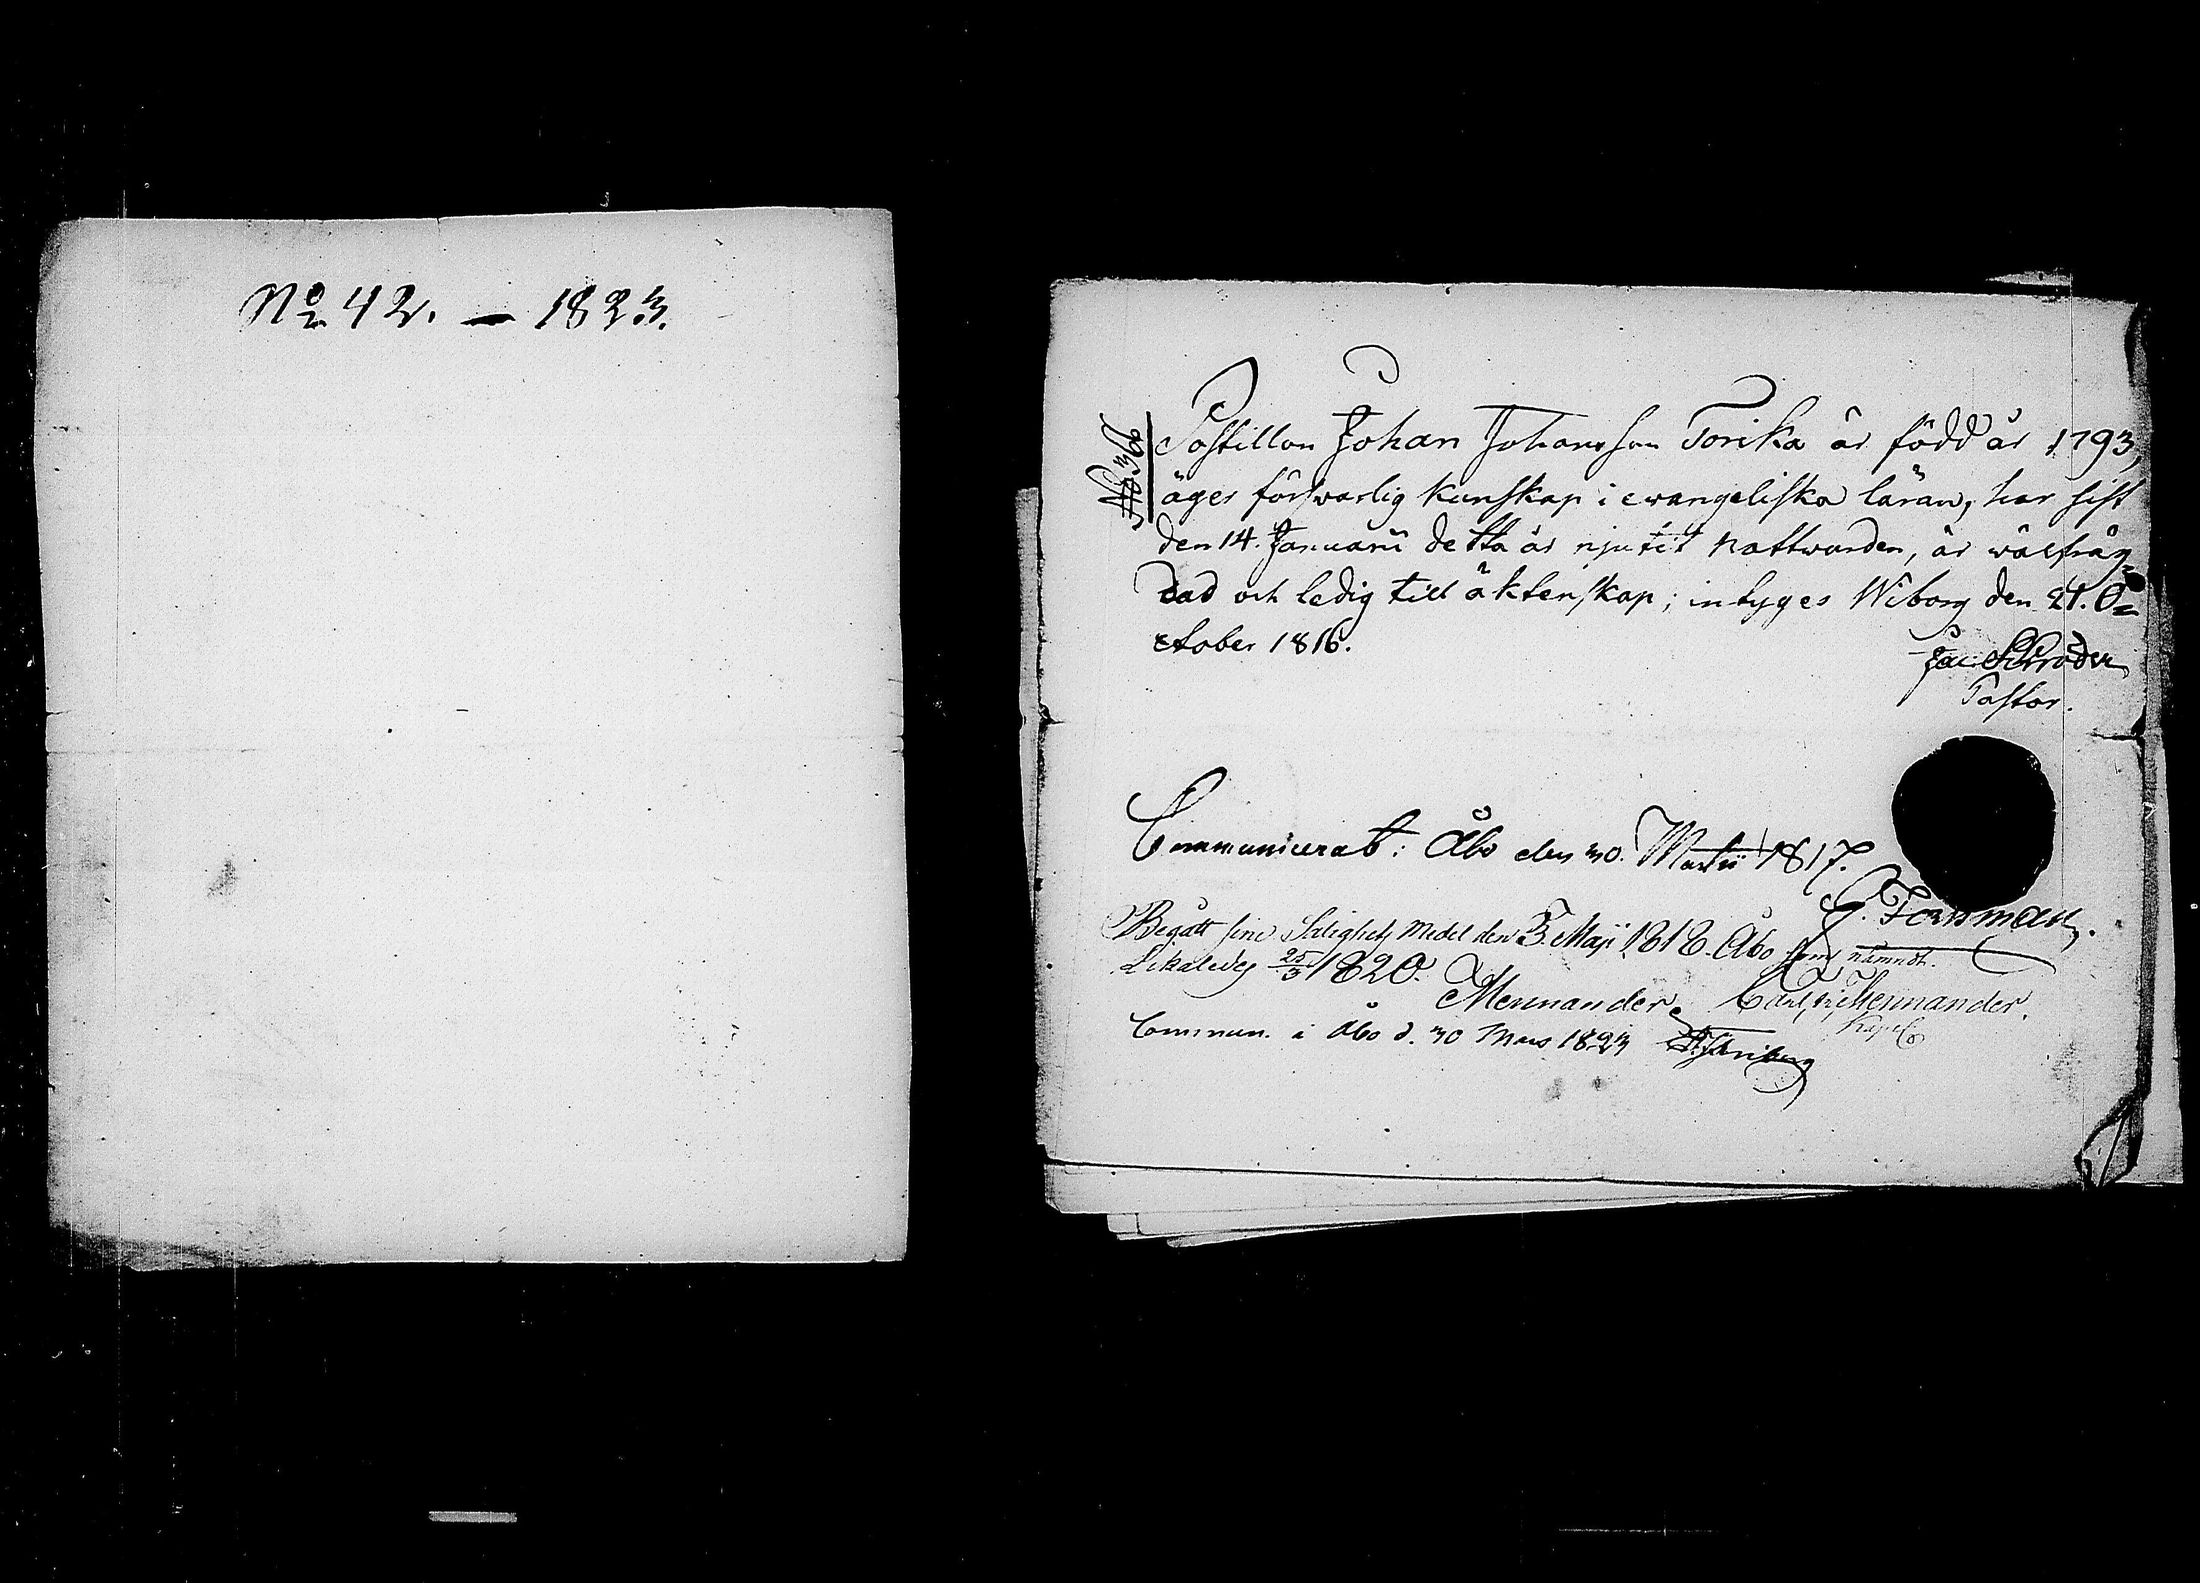 No 42. — 1823.
No 366
Postillon Johan Johansson Torika är född år 1793,
äger förswarlig kunskap i ewangeliska läran, har sist
den 14. Januarii detta år njutit nattwarden, är wälfräg=
dad och ledig till äktenskap; intyges Wiborg den 21. O=
ctober 1816.
Jac: Schröder
Pastor.
Communicerat: Åbo den 30. Martii 1817.
G. Forsman.
Begått sine Salighets Medel den 3. Maji 1818. Åbo som nämndt.
Likaledes 25/3 1820.
Mennander. Carl Fr: Mennander.
Commun. i Åbo d. 30 Mars 1823